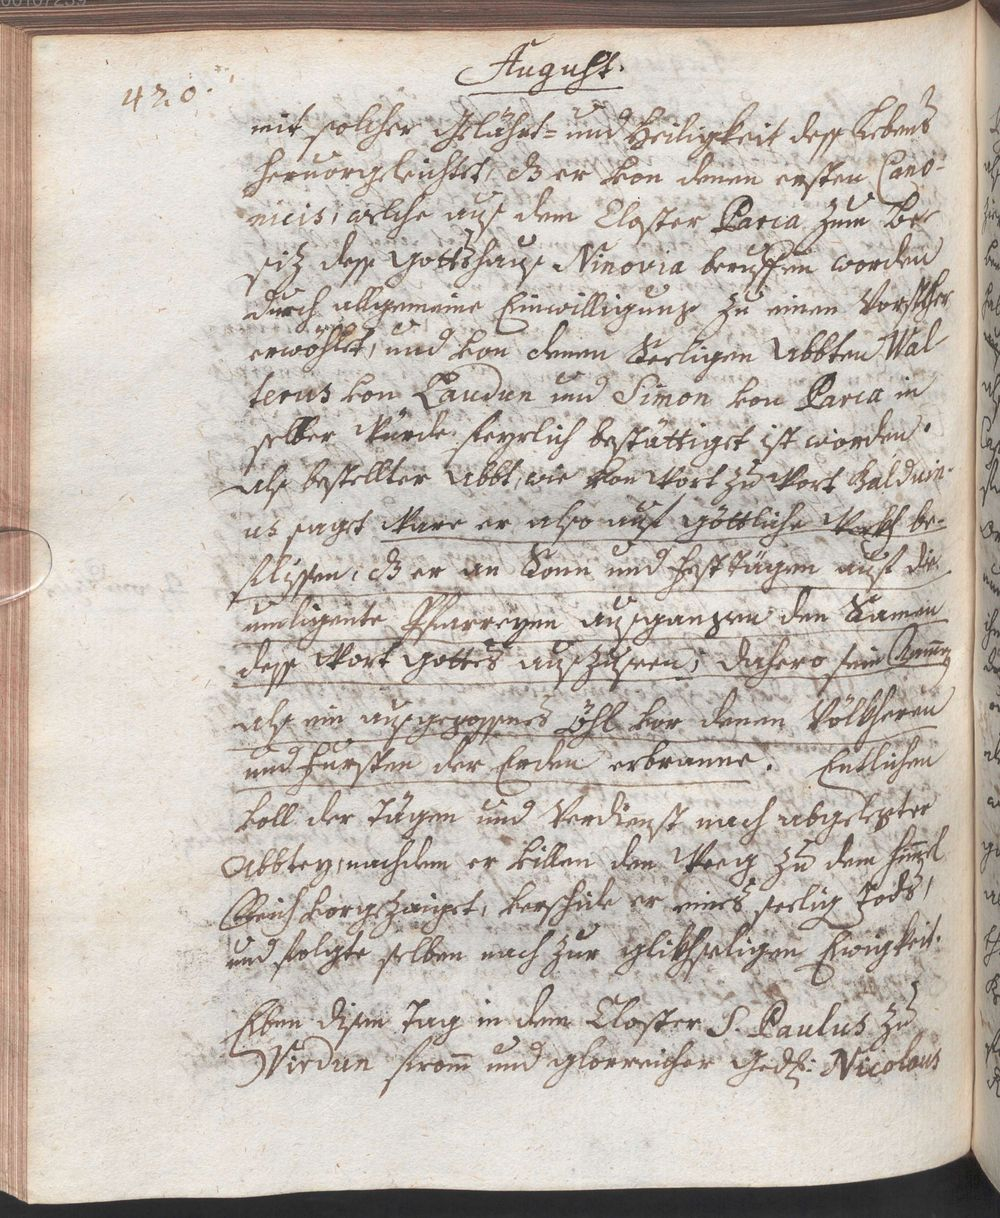 August.
420.
mit solcher Glährt- und Heiligkeit dess Lebens
hervorgeleichtet, dz er von denen ersten Cano-
nicis, welche auß dem Closter Parca zum Be-
siz dess Gottshauß Ninovia beruffen worden
durch allgemeine Einwilligung zu einen Vorsteher
erwöhlet, und von denen Seeligen Abbten Wal-
terus von Laudun und Simon von Parca in
selber Würde feyrlich bestättiget ist worden.
Als bestellter Abbt, wie von Wort zu Wort Balduin-
us saget ware er also auf göttliche Werkh be-
flissen, dz er an Sonn und Festtägen auß die
umligente Pfarreyen außgangen den Samen
dess Wort Gottes außzusäen, dahero sein Namen
als ein außgegossenes Öhl vor denen Völkheren
und Fursten der Erden erbranne. Entlichen
voll der Tägen und Verdienst nach abgelegter
Abbtey, nachdem er villen den Weeg zu dem Himmel
Reich vorgezaiget, verschide er eines seelig Tods,
und folgte selben nach zur glikhseeligen Ewigkeit.
Eben disen Tag in dem Closter S. Paulus zu
Virdun from und glorreicher Gedh: Nicolaus